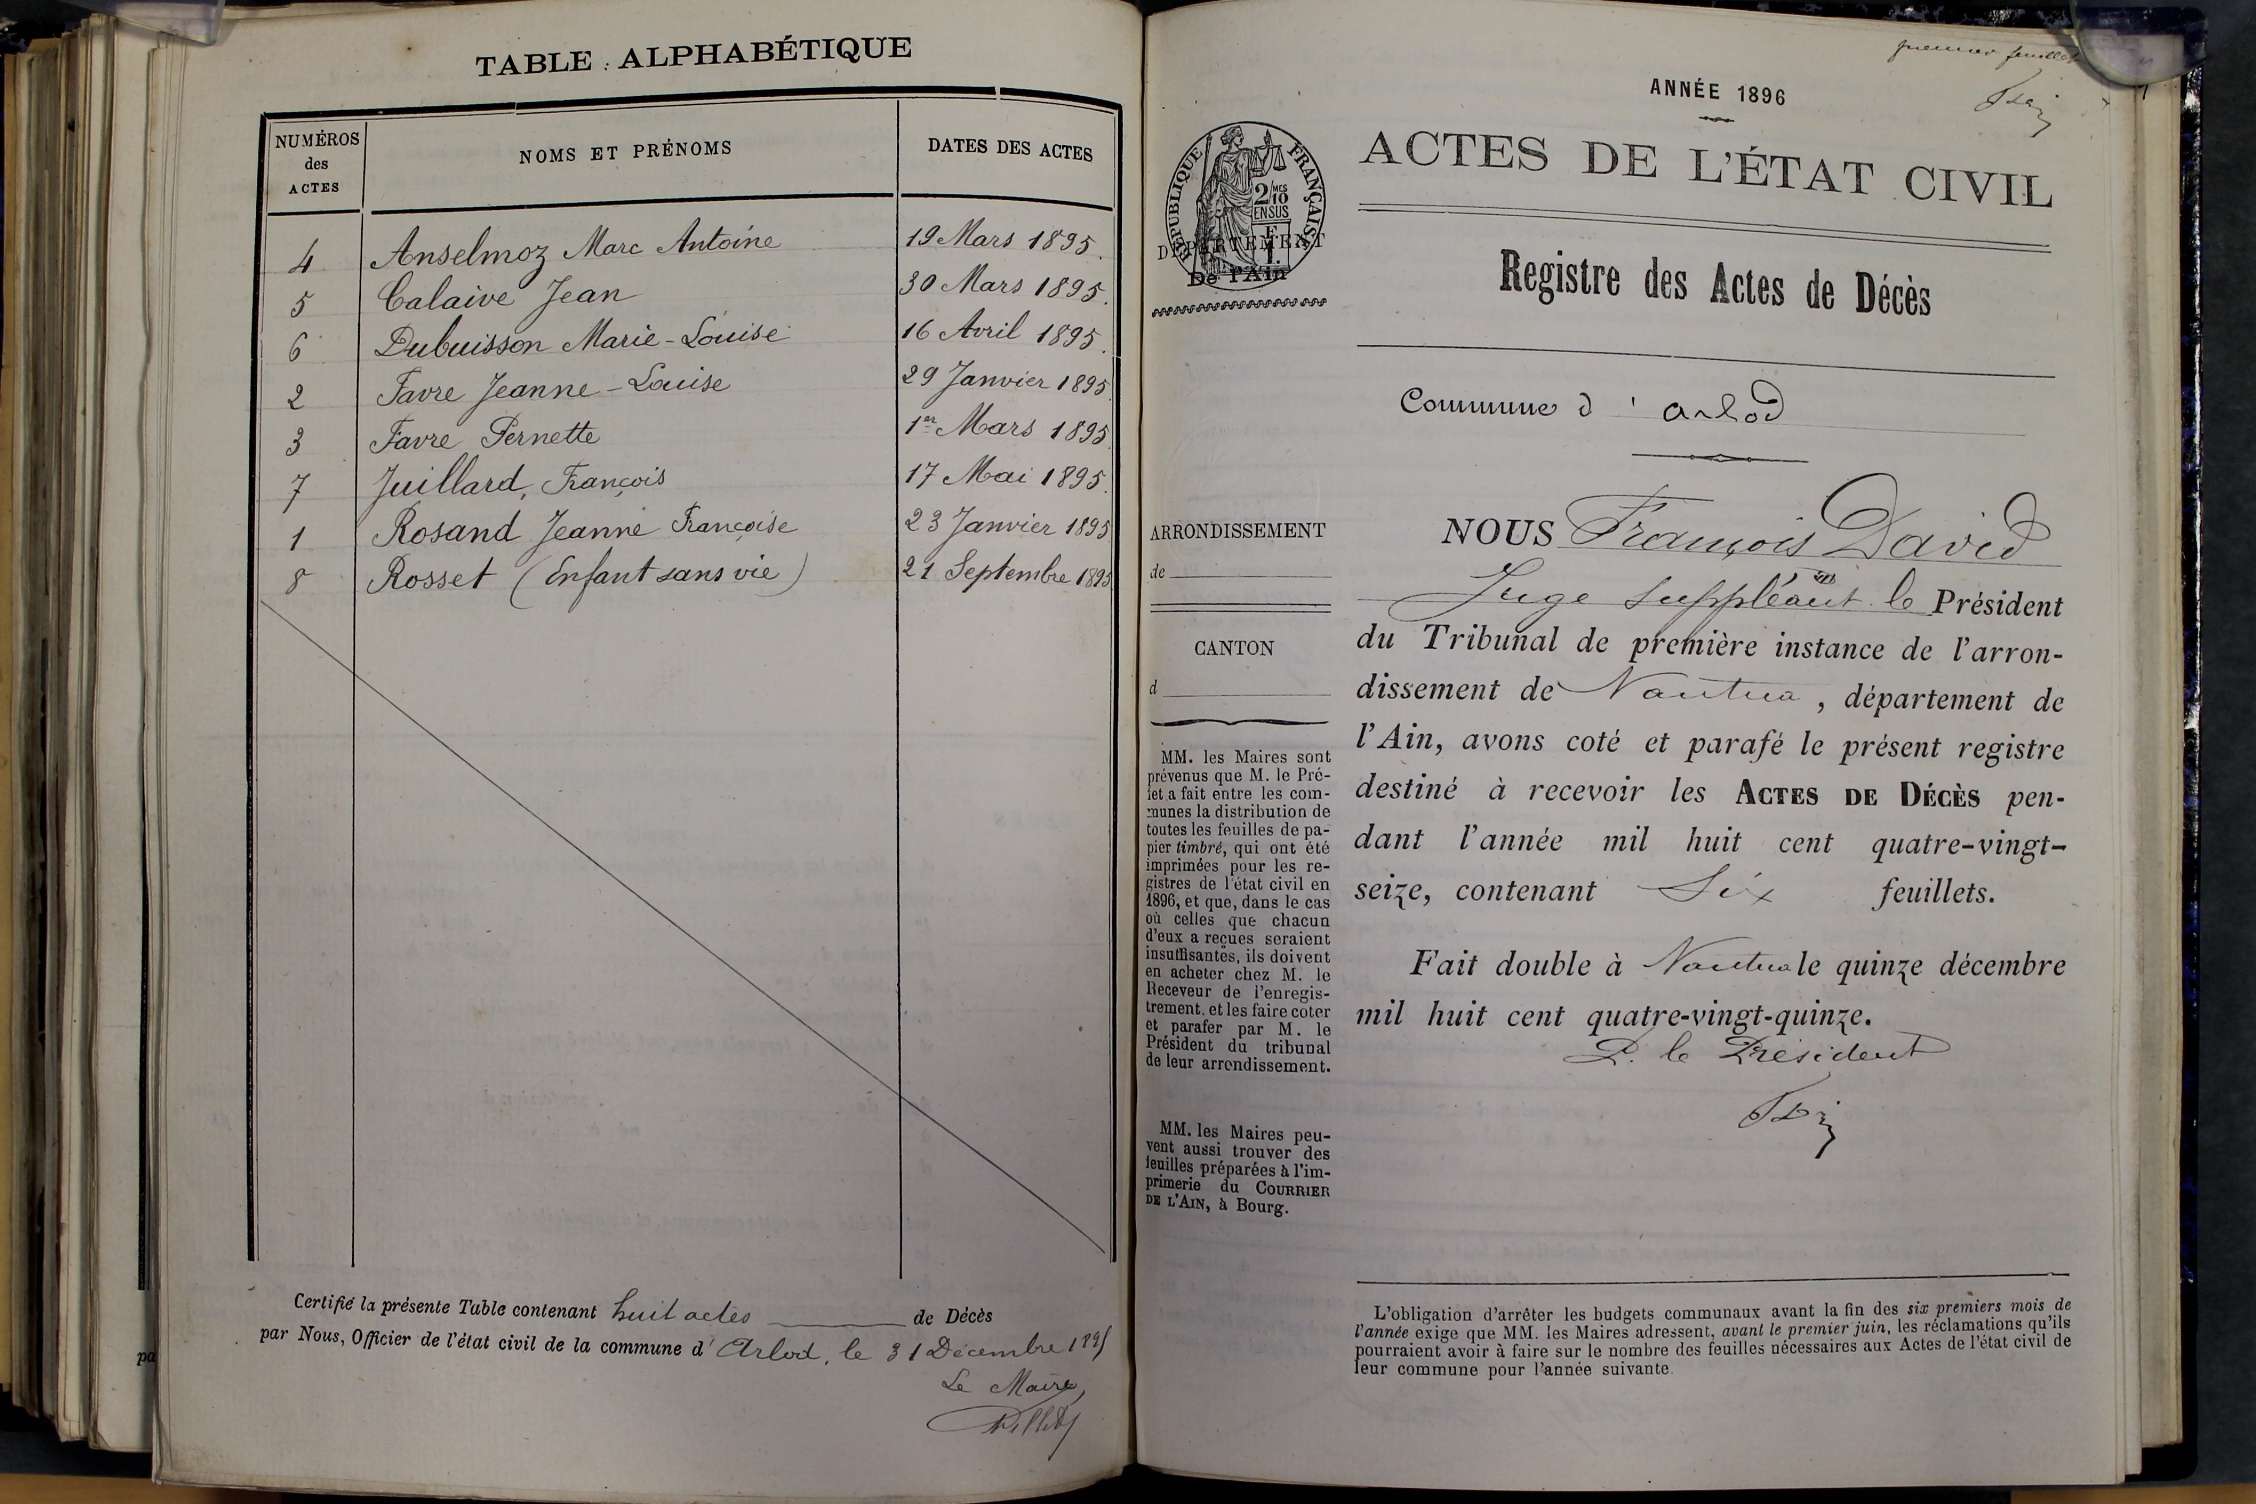 TABLE ALPHABÉTIQUE
NUMÉROS des ACTES
NOMS ET PRÉNOMS
DATES DES ACTES
4 Anselmoz Marc Antoine 19 Mars 1895.
5 Calaive Jean 30 Mars 1895.
6 Dubuisson Marie-Louise 16 Avril 1895.
2 Favre Jeanne-Louise 29 Janvier 1895
3 Favre Pernette 1er Mars 1895
7 Juillard, François 17 Mai 1895.
1 Rosand Jeanne Françoise 23 Janvier 1895
8 Rosset (Enfant sans vie) 21 Septembre 1895
Certifié la présente Table contenant huit actes de Décès
par Nous, Officier de l'état civil de la commune d' Arlod, le 31 Décembre 1895
Le Maire,
pa
premier feuillet
ANNÉE 1896
ACTES DE L'ÉTAT CIVIL
RÉPUBLIQUE FRANÇAISE
2/10 MES
EN SUS
DÉPARTEMENT
De l'Ain
Registre des Actes de Décès
Commune d' Arlod
ARRONDISSEMENT
de
CANTON
d
MM. les Maires sont
prévenus que M. le Pré-
fet a fait entre les com-
munes la distribution de
toutes les feuilles de pa-
pier timbré, qui ont été
imprimées pour les re-
gistres de l'état civil en
1896, et que, dans le cas
où celles que chacun
d'eux a reçues seraient
insuffisantes, ils doivent
en acheter chez M. le
Receveur de l'enregis-
trement. et les faire coter
et parafer par M. le
Président du tribunal
de leur arrondissement.
MM. les Maires peu-
vent aussi trouver des
feuilles préparées à l'im-
primerie du COURRIER
DE L'AIN, à Bourg.
NOUS François David
Juge suppléant le Président
du Tribunal de première instance de l'arron-
dissement de Nantua, département de
l'Ain, avons coté et parafé le présent registre
destiné à recevoir les ACTES DE DÉCÈS pen-
dant l'année mil huit cent quatre-vingt-
seize, contenant Six feuillets.
Fait double à Nantua le quinze décembre
mil huit cent quatre-vingt-quinze.
P. le Président
L'obligation d'arrêter les budgets communaux avant la fin des six premiers mois de
l'année exige que MM. les Maires adressent, avant le premier juin, les réclamations qu'ils
pourraient avoir à faire sur le nombre des feuilles nécessaires aux Actes de l'état civil de
leur commune pour l'année suivante.